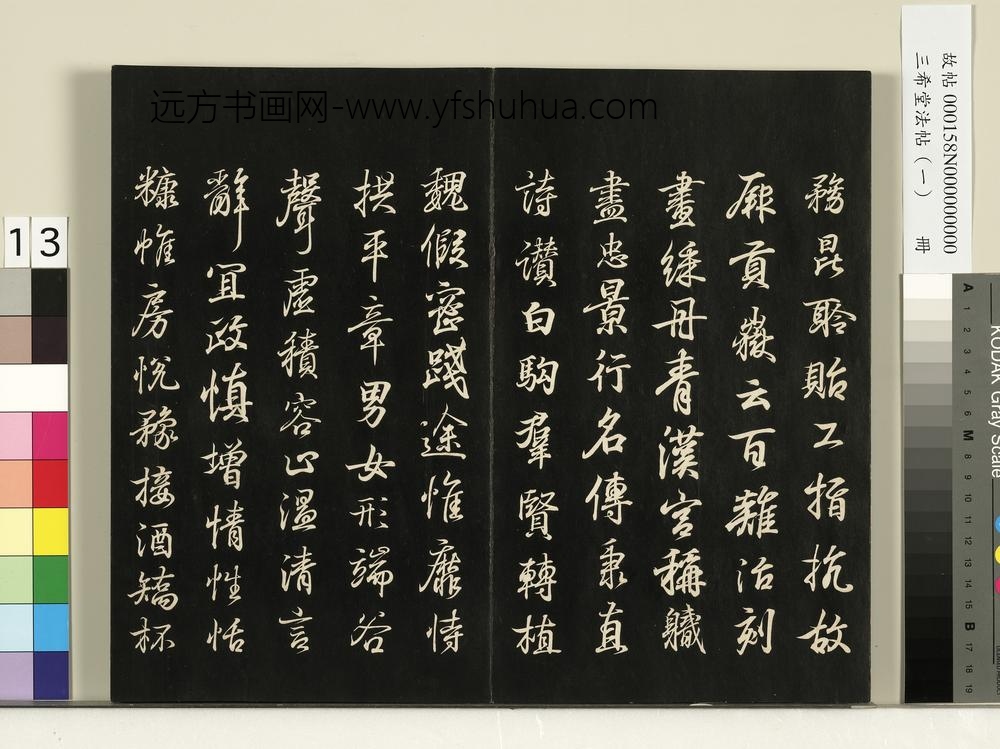 故帖 000158N000000000
三希堂法帖（一） 冊
远方书画网-www.yfshuhua.com
務昆聆貽工指抗故
厥貢嶽云百難活刻
畫綵丹青漢宮稱軄
盡忠景行名傳秉直
詩讚白駒羣賢轉植
魏假密踐途惟靡恃
拱平章男女形端谷
聲虛積容止溫清言
辭宜政慎增情性恬
糠帷房悅豫接酒矯杯
13
KODAK Gray Scale
A 1 2 3 4 5 6 M 8 9 10 11 12 13 14 15 B 17 18 19